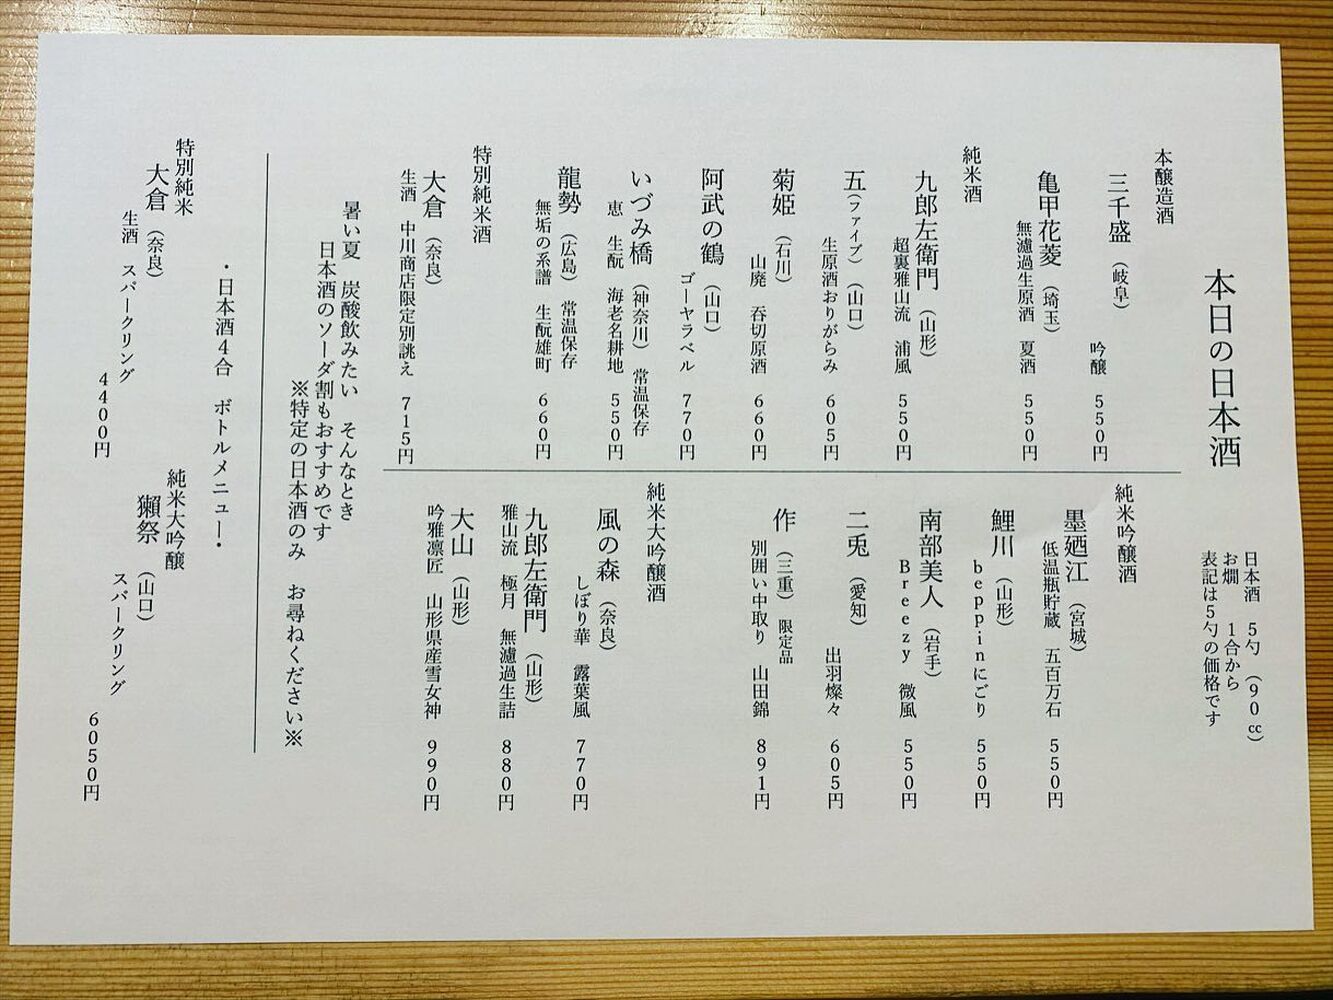 本日の日本酒
日本酒 5勺(90㏄)
お燗 1合から
表記は5勺の価格です
本醸造酒
三千盛(岐阜)
吟醸 550円
亀甲花菱(埼玉)
無濾過生原酒 夏酒 550円
純米酒
九郎左衛門(山形)
超裏雅山流 浦風 550円
五(ファイブ)(山口)
生原酒おりがらみ 605円
菊姫(石川)
山廃 呑切原酒 660円
阿武の鶴(山口)
ゴーヤラベル 770円
いづみ橋(神奈川)常温保存
恵 生酛 海老名耕地 550円
龍勢(広島)常温保存
無垢の系譜 生酛雄町 660円
特別純米酒
大倉(奈良)
生酒 中川商店限定別誂え 715円
純米吟醸酒
墨廼江(宮城)
低温瓶貯蔵 五百万石 550円
鯉川(山形)
beppinにごり 550円
南部美人(岩手)
Breezy 微風 550円
二兎(愛知)
出羽燦々 605円
作(三重)限定品
別囲い中取り 山田錦 891円
純米大吟醸酒
風の森(奈良)
しぼり華 露葉風 770円
九郎左衛門(山形)
雅山流 極月 無濾過生詰 880円
大山(山形)
吟雅凛匠 山形県産雪女神 990円
暑い夏 炭酸飲みたい そんなとき
日本酒のソーダ割もおすすめです
※特定の日本酒のみ お尋ねください※
・日本酒4合 ボトルメニュー・
特別純米
大倉(奈良)
生酒 スパークリング
4400円
純米大吟醸
獺祭(山口)
スパークリング
6050円